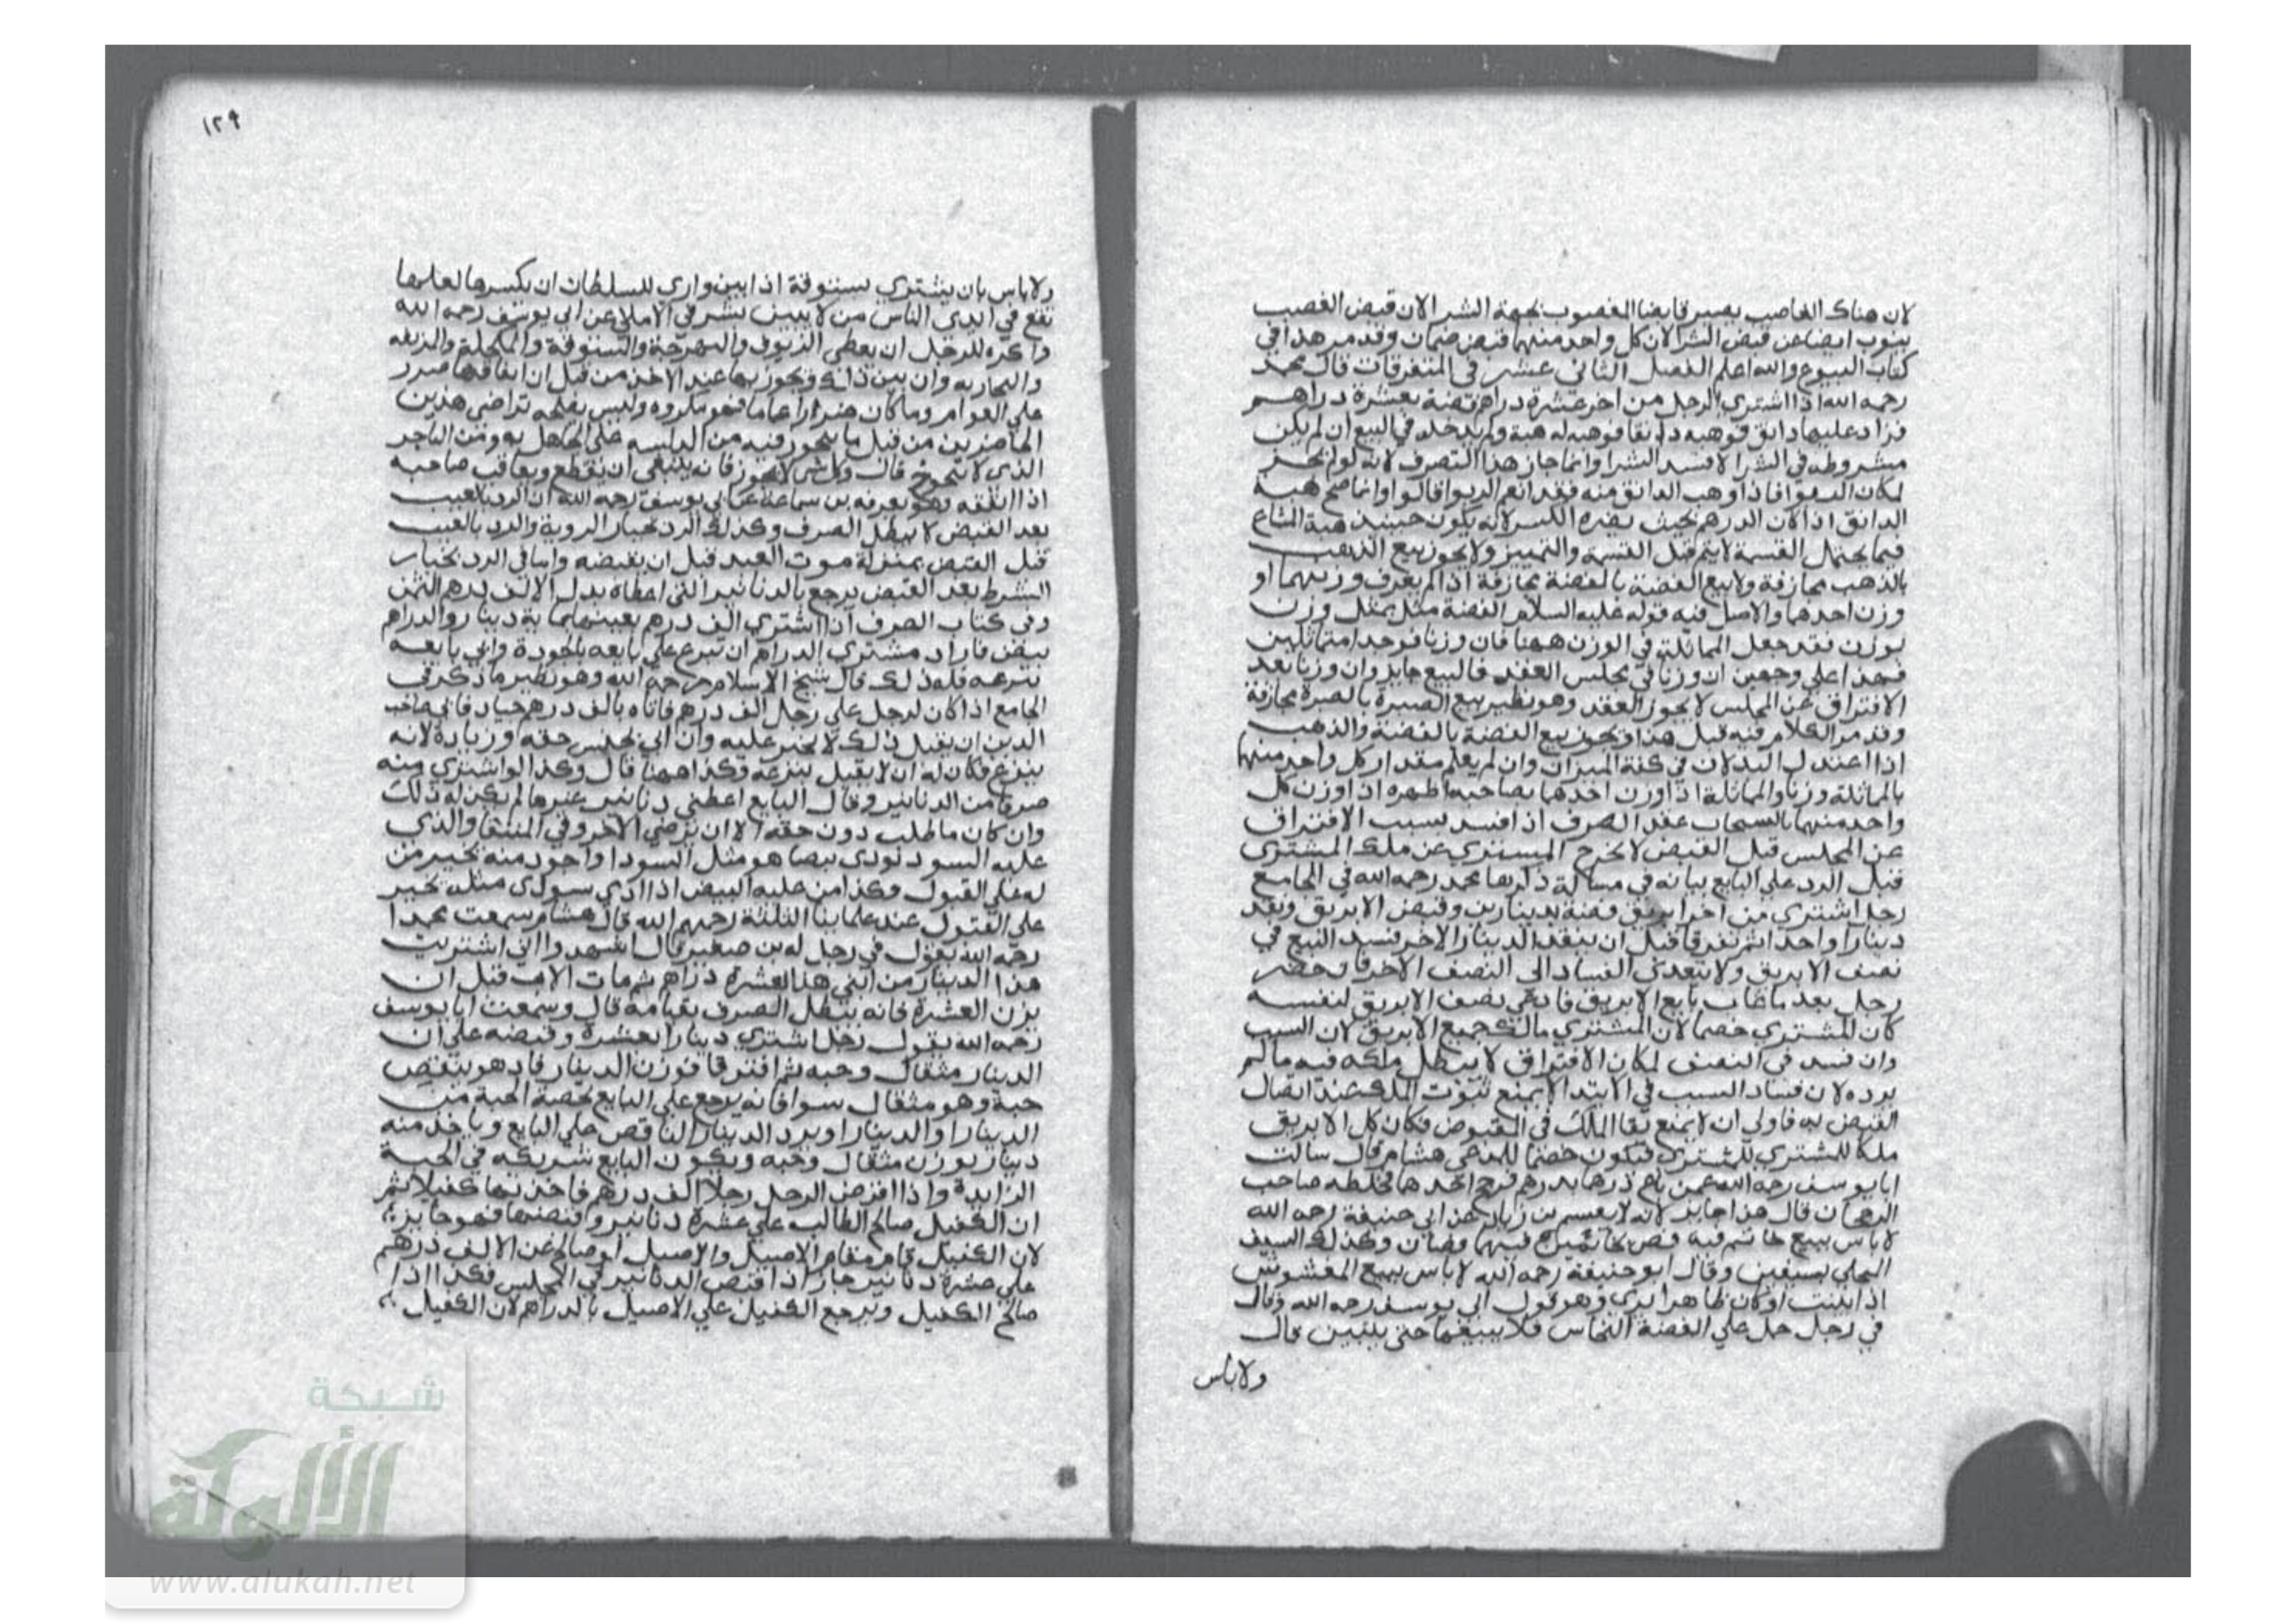 لان هناك الغاصب يصير قابضا المغصوب بجهة الشرا لان قبض الغصب
ينوب ايضا عن قبض الشرا لان كل واحد منهما قبض ضمان وقد مر هذا في
كتاب البيوع والله اعلم الفصل الثاني عشر في المتفرقات قال محمد
رحمه الله اذا اشتري الرجل من اخر عشرة دراهم فضة بعشرة دراهم
فزاد عليها دانق فوهبه دانقا فوهبه له هبة ولم يدخله في البيع ان لم يكن
مشروطه في الشرا لا فسد الشرا وانما جاز هذا التصرف لانه لو لم يجز
لمكان الربوا فاذا وهب الدانق منه فقد انعدم الربوا قالوا وانما صح هبة
الدانق اذا كان الدرهم بحيث يضره الكسر لانه يكون حينيذ هبة المشاع
فيما يحتمل القسمة لا يتم قبل القسمة والتمييز ولا يجوز بيع الذهب
بالذهب مجازفة ولا بيع الفضة بالفضة مجازفة اذا لم يعرف وزنهما او
وزن احدهما والاصل فيه قوله عليه السلام الفضة مثل بمثل وزن
بوزن فقد جعل المماثلة في الوزن ههنا فان وزنا فوجدا متماثلين
فهذا علي وجهين ان وزنا في مجلس العقد فالبيع جايز وان وزنا بعد
الافتراق عن المجلس لا يجوز العقد وهو نظير بيع الصبرة بالصبرة مجازفة
وقد مر الكلام فيه قبل هذا ويجوز بيع الفضة بالفضة والذهب
اذا اعتدل البدلان في كفة الميزان وان لم يعلم مقدار كل واحد منهما
بالمماثلة وزنا والمماثلة اذا وزن احدهما بصاحبه اظهره اذا وزن كل
واحد منهما بالسنجات عقد الصرف اذا فسد بسبب الافتراق
عن المجلس قبل القبض لا يخرج المشتري عن ملك المشتري
قبل الرد علي البايع بيانه في مسالة ذكرها محمد رحمه الله في الجامع
رجل اشتري من اخر ابريق فضة بدينارين وقبض الابريق ونقد
دينارا واحدا ثم تفرقا قبل ان ينقد الدينار الاخر فسد البيع في
نصف الابريق ولا يتعدي الفساد الي النصف الاخر فان حضر
رجل بعد ما غاب بايع الابريق فادعي نصف الابريق لنفسه
كان المشتري خصما لان المشتري مالك جميع الابريق لان السبب
وان فسد في النصف لمكان الافتراق لا يبطل ملكه فيه ما لم
يرده لان فساد السبب في الابتدا لا يمنع ثبوت الملك عند اتصال
القبض به فاولي ان لا يمنع بقا الملك في المقبوض فكان كل الابريق
ملكا للمشتري للمشتري فيكون خصما للمدعي هشام قال سالت
ابا يوسف رحمه الله عمن باع درهما بدرهم فرجح احدهما فحلله صاحب
الرجحان قال هذا جايز لانه لا يقسم بن زياد عن ابي حنيفة رحمه الله
لا باس ببيع خاتم فيه فص بخاتمين فيهما فصان وكذلك السيف
المحلي بسيفين وقال ابو حنيفة رحمه الله لا باس ببيع المغشوش
اذا بينت او كان ظاهرا يري وهو قول ابي يوسف رحمه الله وقال
في رجل حمل علي الفضة النحاس فلا يبيعها حتي يبين قال
ولا باس
١٢٩
ولا باس بان يشتري بستوقة اذا بين واري للسلطان ان يكسرها لعلها
تقع في ايدي الناس من لا يبين بشر في الاملي عن ابي يوسف رحمه الله
واكره للرجل ان يعطي الزيوف والنبهرجة والستوقة والمكحلة والمزيفه
والبخاريه وان بين ذلك ويجوز بها عند الاخذ من قبل ان انفاقها ضرر
علي العوام وما كان ضررا عاما فهو مكروه وليس يصلحه تراضي هذين
الحاضرين من قبل ما يتخوف فيه من الدلسه علي الجاهل به ومن التاجر
الذي لا يتحرج قال وكل شي لا يجوز فانه ينبغي ان يقطع ويعاقب صاحبه
اذا انفقه وهو يعرفه بن سماعة عن ابي يوسف رحمه الله ان الرد بالعيب
بعد القبض لا يبطل الصرف وكذلك الرد بخيار الروية والرد بالعيب
قبل القبض بمنزلة موت العبد قبل ان يقبضه واما في الرد بخيار
الشرط بعد القبض يرجع بالدنانير التي اعطاه بدل الالف درهم الثمن
وفي كتاب الصرف اذا اشتري الف درهم بعينها بماية دينار والدراهم
بيض فاراد مشتري الدراهم ان تبرع علي بايعه بالجودة وابي بايعه
تبرعه فله ذلك قال شيخ الاسلام رحمه الله وهو نظير ما ذكر في
الجامع اذا كان لرجل علي رجل الف درهم فاتاه بالف درهم جياد فابي صاحب
الدين ان يقبل ذلك لا يجبر عليه وان ابي بجنس حقه وزيادة لانه
تبرع فكان له ان لا يقبل تبرعه وكذا ههنا قال وكذا لو اشتري منه
صرفا من الدنانير وقال البايع اعطني دنانير غيرها لم يكن له ذلك
وان كان ما طلب دون حقه الا ان يرضي الاخر وفي المنتقا والذي
عليه السود يودي بيضا هو مثل السودا واجود منه يجبر من
له علي القبول وكذا من عليه البيض اذا ادي سودي مثله يجبر
علي القبول عند علماينا الثلثة رحمهم الله قال هشام سمعت محمدا
رحمه الله يقول في رجل له بن صغير قال اشهدوا اني اشتريت
هذا الدينار من ابني هذا بعشرة دراهم ثم مات الاب قبل ان
يزن العشرة فانه يبطل الصرف بقيامه قال وسمعت ابا يوسف
رحمه الله يقول رجل اشتري دينارا بعشرة وقبضه علي ان
الدينار مثقال وحبه ثم افترقا فوزن الدينار فاذ هو ينقص
حبة وهو مثقال سوا فانه يرجع علي البايع بحصة الحبة من
الدينارا والدينارا ويرد الدينار الناقص علي البايع وياخذ منه
دينار بوزن مثقال وحبه ويكون البايع شريكه في الحبة
الزايدة واذا اقرض الرجل رجلا الف درهم فاخذ بها كفيلا ثم
ان الكفيل صالح الطالب علي عشرة دنانير وقبضها فهو جايز
لان الكفيل قام مقام الاصيل والاصيل لو صالح عن الالف درهم
علي عشرة دنانير جاز اذا قبض الدنانير في المجلس فكذا اذا
صالح الكفيل ويرجع الكفيل علي الاصيل بالدراهم لان الكفيل
شبكة
الألوكة
www.alukah.net